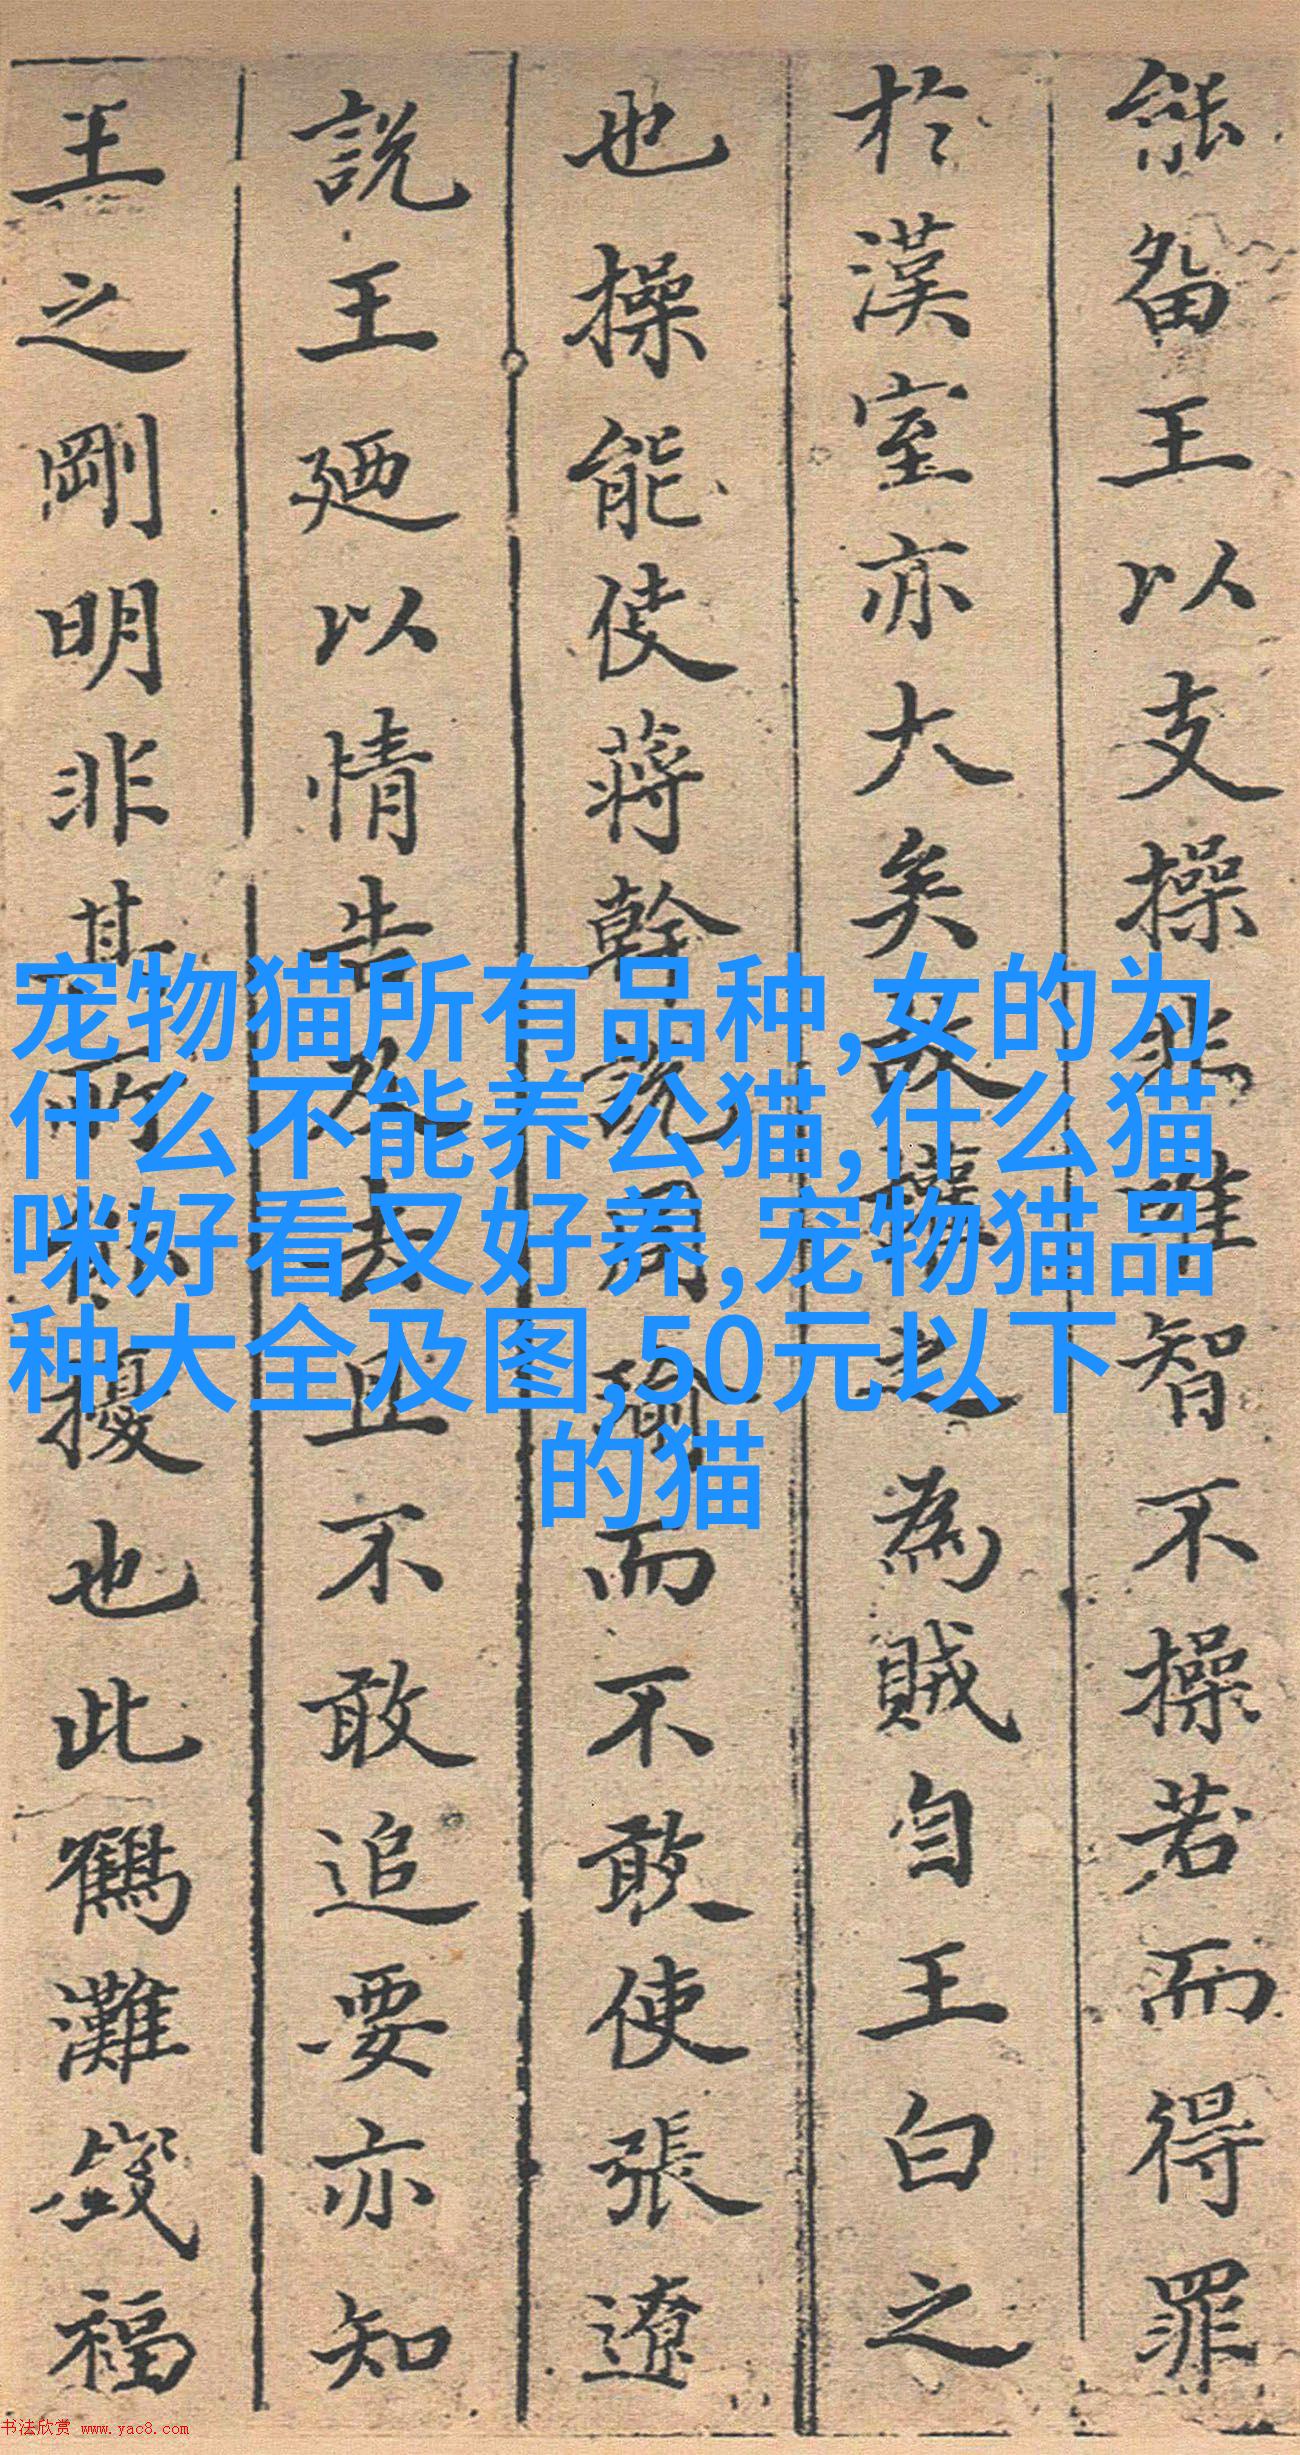 能留王以支操非唯智不操若而得罪
於漢室亦大矣故權之為賊自王白之
也操能使蔣幹說周瑜而不敢使張遼
說王廼以情告及去且不敢追要亦知
王之剛明非其所擾也此鶴灘福
宠物猫所有品种,女的为
什么不能养公猫,什么猫
咪好看又好养,宠物猫品
种大全及图,50元以下
的猫
书法欣赏 www.yac8.com